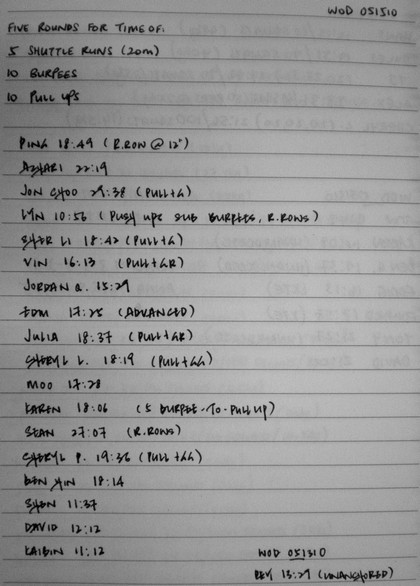 WOD 051310
FIVE ROUNDS FOR TIME OF:
5 SHUTTLE RUNS (20m)
10 BURPEES
10 PULL UPS
PING 18:49 (R.ROW @ 12")
AZHARI 22:19
JON CHOO 29:38 (PULL+G)
LYN 10:56 (PUSH UPS SUB BURPEES, R.ROWS)
SHER LI 18:42 (PULL+G)
VIN 16:13 (PULL+GR)
JORDAN Q. 15:29
EDM 17:25 (ADVANCED)
JULIA 18:37 (PULL+GR)
CHERYL L. 18:19 (PULL+GG)
MOO 17:28
KAREN 18:06 (5 BURPEE-TO-PULL UP)
SEAN 27:07 (R.ROWS)
CHERYL P. 19:36 (PULL+GG)
BEN YIN 18:14
SHEN 11:37
DAVID 12:12
KAIBIN 11:12
WOD 051310
BEV 13:29 (UNANCHORED)